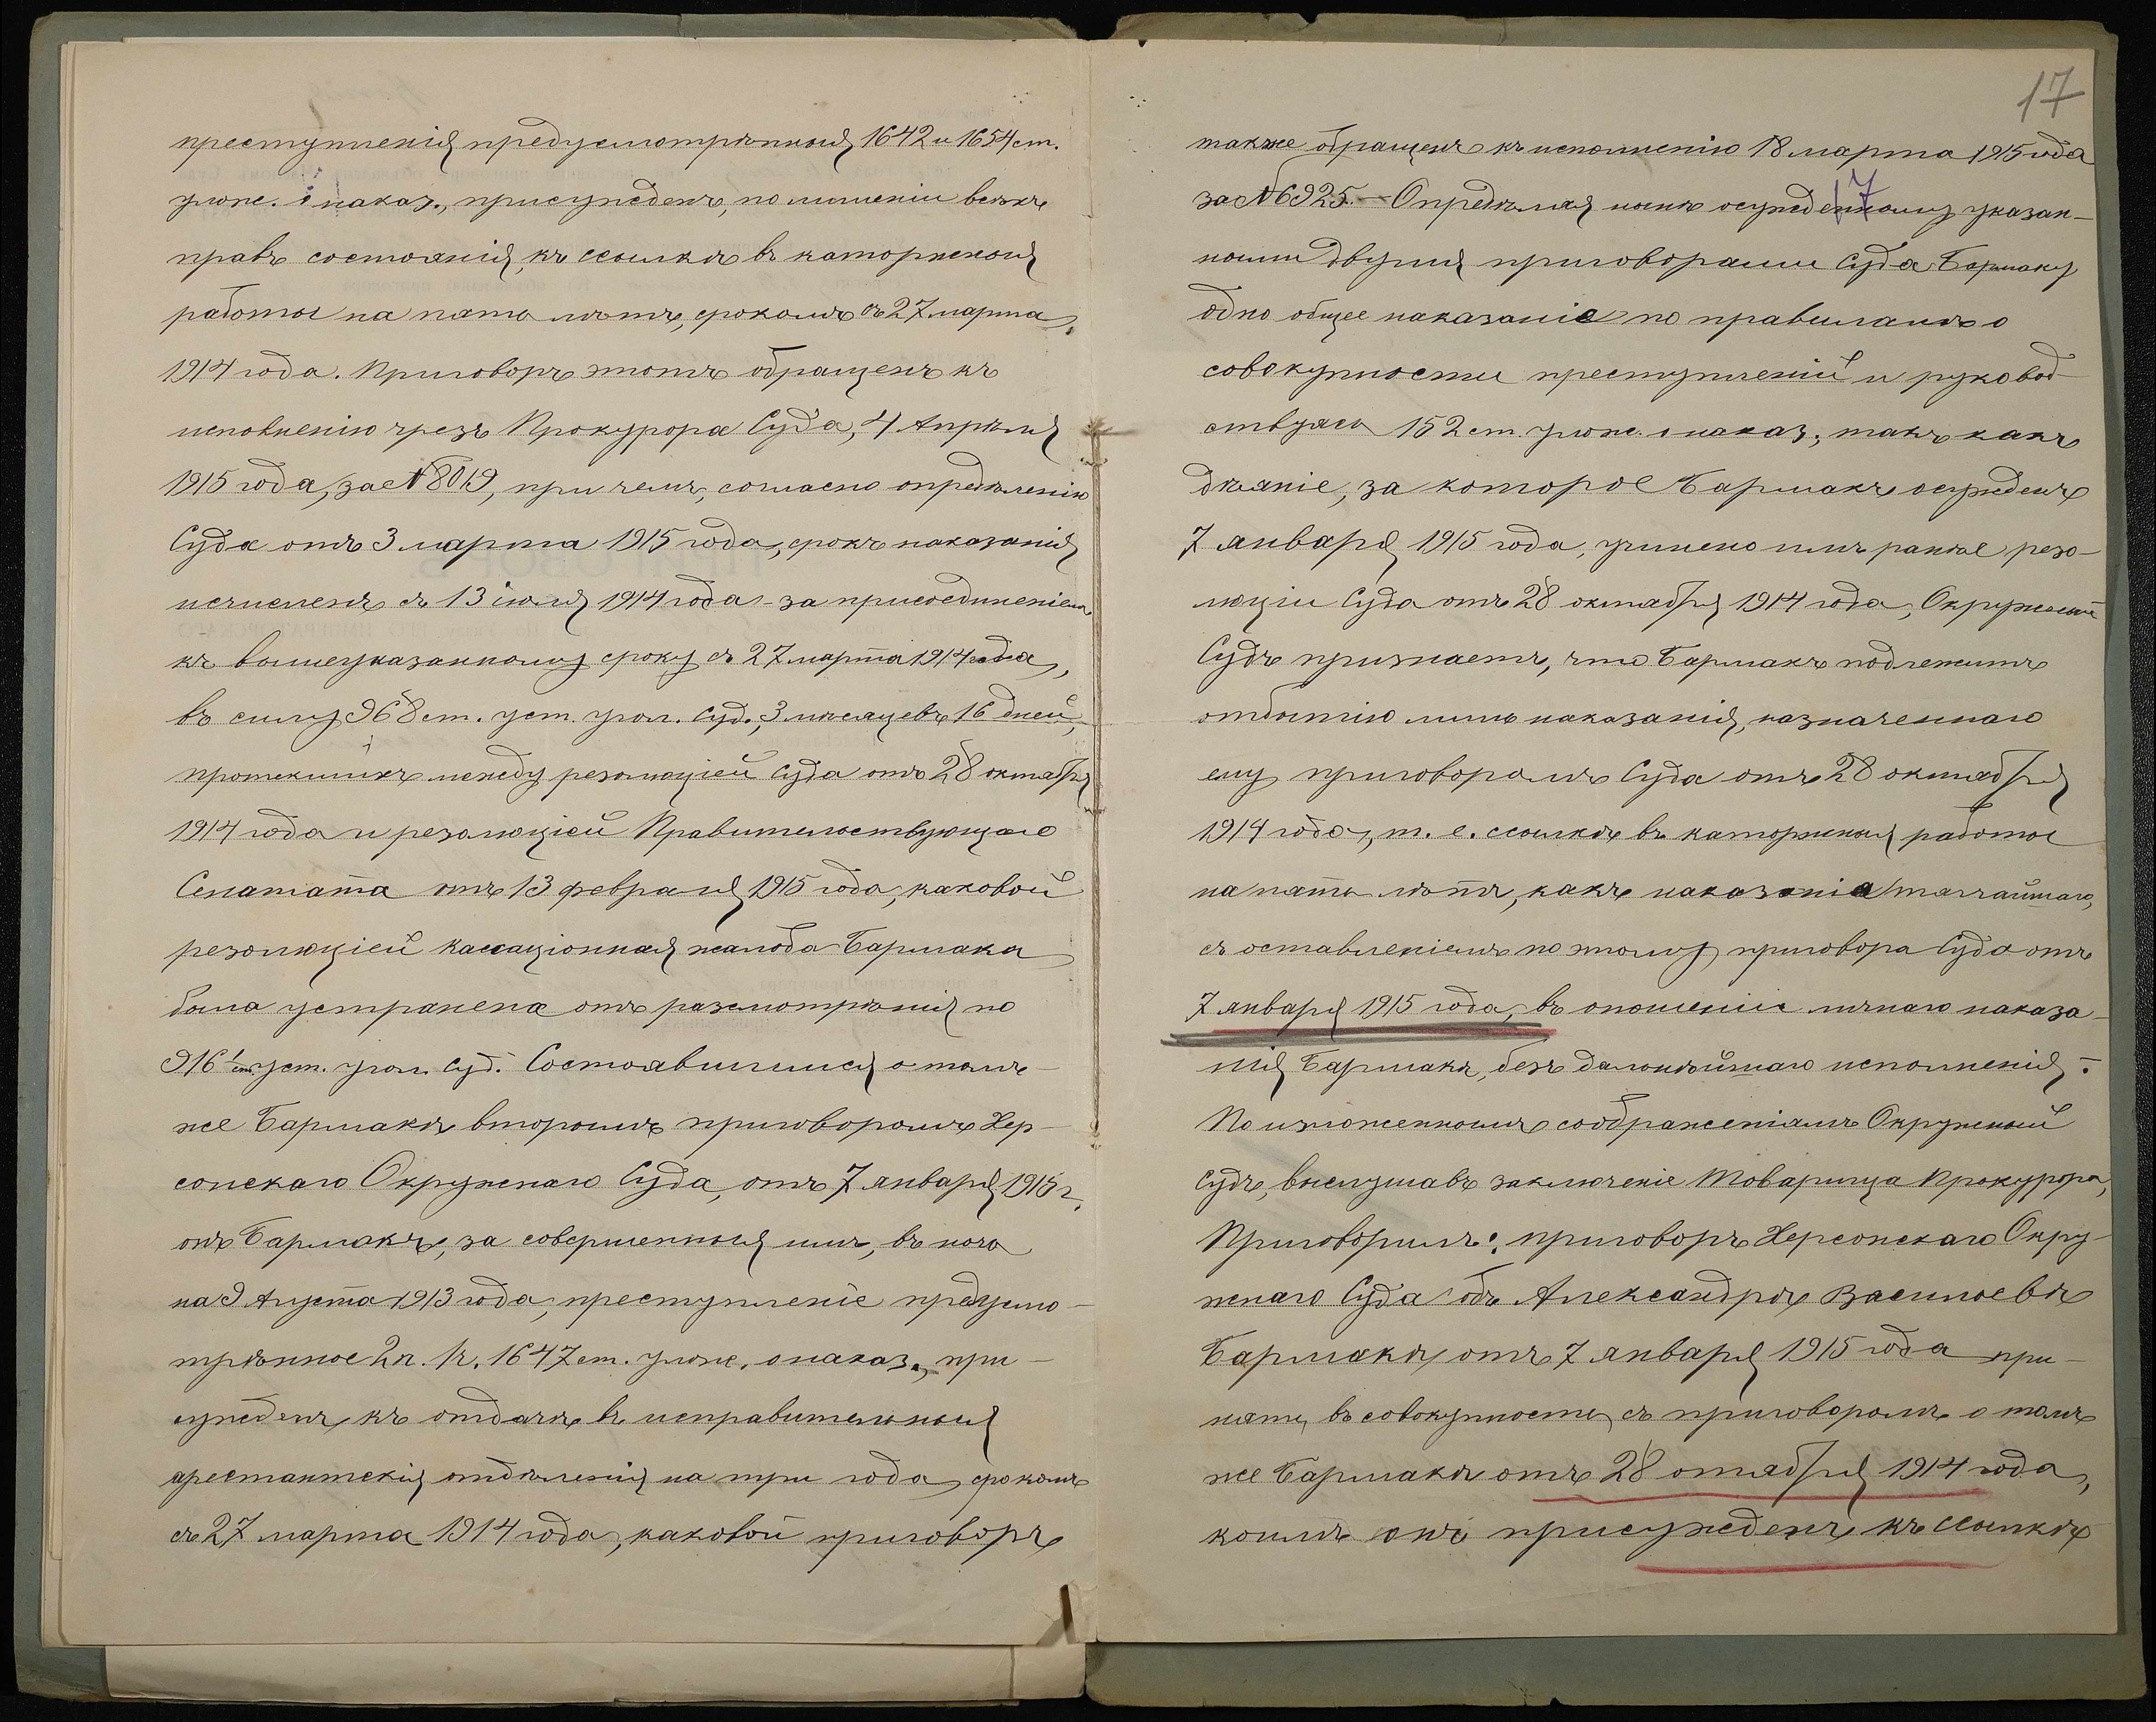 преступленія, предусмотрѣнныя 1642 и 1654 ст.
улож. о наказ., присужденъ, по лишеніи всѣхъ
правъ состоянія, къ ссылкѣ въ каторжныя
работы на пять лѣтъ, срокомъ съ 27 марта
1914 года. Приговоръ этотъ обращенъ къ
исполненію чрезъ Прокурора Суда, 4 Апрѣля
1915 года, за № 8019, при чемъ, согласно опредѣленію
Суда отъ 3 марта 1915 года, срокъ наказанія
исчисленъ съ 13 іюля 1914 года - за присоединеніемъ
къ вышеуказанному сроку съ 27 марта 1914 года,
въ силу 968 ст. уст. угол. суд., 3 мѣсяцевъ 16 дней,
протекшихъ между резолюціей Суда отъ 28 октября
1914 года и резолюціей Правительствующаго
Сенатата отъ 13 февраля 1915 года, каковой
резолюціей кассаціонная жалоба Бармака
была устранена отъ разсмотрѣнія по
916¹ ст. уст. угол. суд. Состоявшимся о томъ-
же Бармакѣ вторымъ приговоромъ Хер-
сонскаго Окружнаго Суда, отъ 7 января 1915 г.
онъ Бармакъ, за совершенныя имъ, въ ночь
на 9 Августа 1913 года, преступленіе предусмо-
трѣнное 2 п. 1 ч. 1647 ст. улож. о наказ., при-
сужденъ къ отдачѣ въ исправительныя
арестантскія отдѣленія на три года, срокомъ
съ 27 марта 1914 года, каковой приговоръ
17
также обращенъ къ исполненію 18 марта 1915 года
за № 6925. - Опредѣляя нынѣ осужденному указан-
17
ными двумя приговорами Суда Бармаку
одно общее наказаніе по правиламъ о
совокупности преступленій и руковод-
ствуясь 152 ст. улож. о наказ., такъ какъ
дѣяніе, за которое Бармакъ осужденъ
7 января 1915 года, учинено имъ ранѣе резо-
люціи Суда отъ 28 октября 1914 года, Окружный
Судъ признаетъ, что Бармакъ подлежитъ
отбытію лишь наказанія, назначеннаго
ему приговоромъ Суда отъ 28 октября
1914 года, т. е. ссылкѣ въ каторжныя работы
на пять лѣтъ, какъ наказанія тягчайшаго,
съ оставленіемъ по этому приговора Суда отъ
7 января 1915 года, въ опошеніи личнаго наказа-
нія Бармака, безъ дальнѣйшаго исполненія. -
По изложеннымъ соображеніямъ Окружный
Судъ, выслушавъ заключеніе Товарища Прокурора,
Приговорилъ: приговоръ Херсонскаго Окру-
жнаго Суда объ Александрѣ Васильевѣ
Бармакѣ, отъ 7 января 1915 года при-
нять, въ совокупности съ приговоромъ о томъ
же Бармакѣ отъ 28 отября 1914 года,
коимъ онъ присужденъ къ ссылкѣ